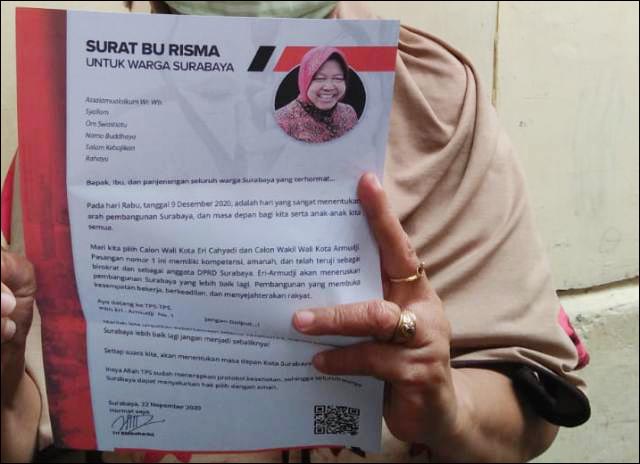 SURAT BU RISMA
UNTUK WARGA SURABAYA
Assalamualaikum Wr. Wb.
Syallom
Om Swastiastu
Namo Buddhaya
Salam Kebajikan
Rahayu
Bapak, Ibu, dan panjenengan seluruh warga Surabaya yang terhormat...
Pada hari Rabu, tanggal 9 Desember 2020, adalah hari yang sangat menentukan
arah pembangunan Surabaya, dan masa depan bagi kita serta anak-anak kita
semua.
Mari kita pilih Calon Wali Kota Eri Cahyadi dan Calon Wakil Wali Kota Armudji.
Pasangan nomor 1 ini memiliki kompetensi, amanah, dan telah teruji sebagai
birokrat dan sebagai anggota DPRD Surabaya. Eri-Armudji akan meneruskan
pembangunan Surabaya yang lebih baik lagi. Pembangunan yang membuka
kesempatan bekerja, berkeadilan, dan menyejahterakan rakyat.
Ayo datang ke TPS-TPS.
Pilih Eri - Armudji No. 1
Jangan Golput...!
Surabaya lebih baik lagi jangan menjadi sebaliknya!
Setiap suara kita, akan menentukan masa depan Kota Surabaya
Insya Allah TPS sudah menerapkan protokol kesehatan, sehingga seluruh warga
Surabaya dapat menyalurkan hak pilih dengan aman.
Surabaya, 22 Nopember 2020
Hormat saya,
Tri Rismaharini